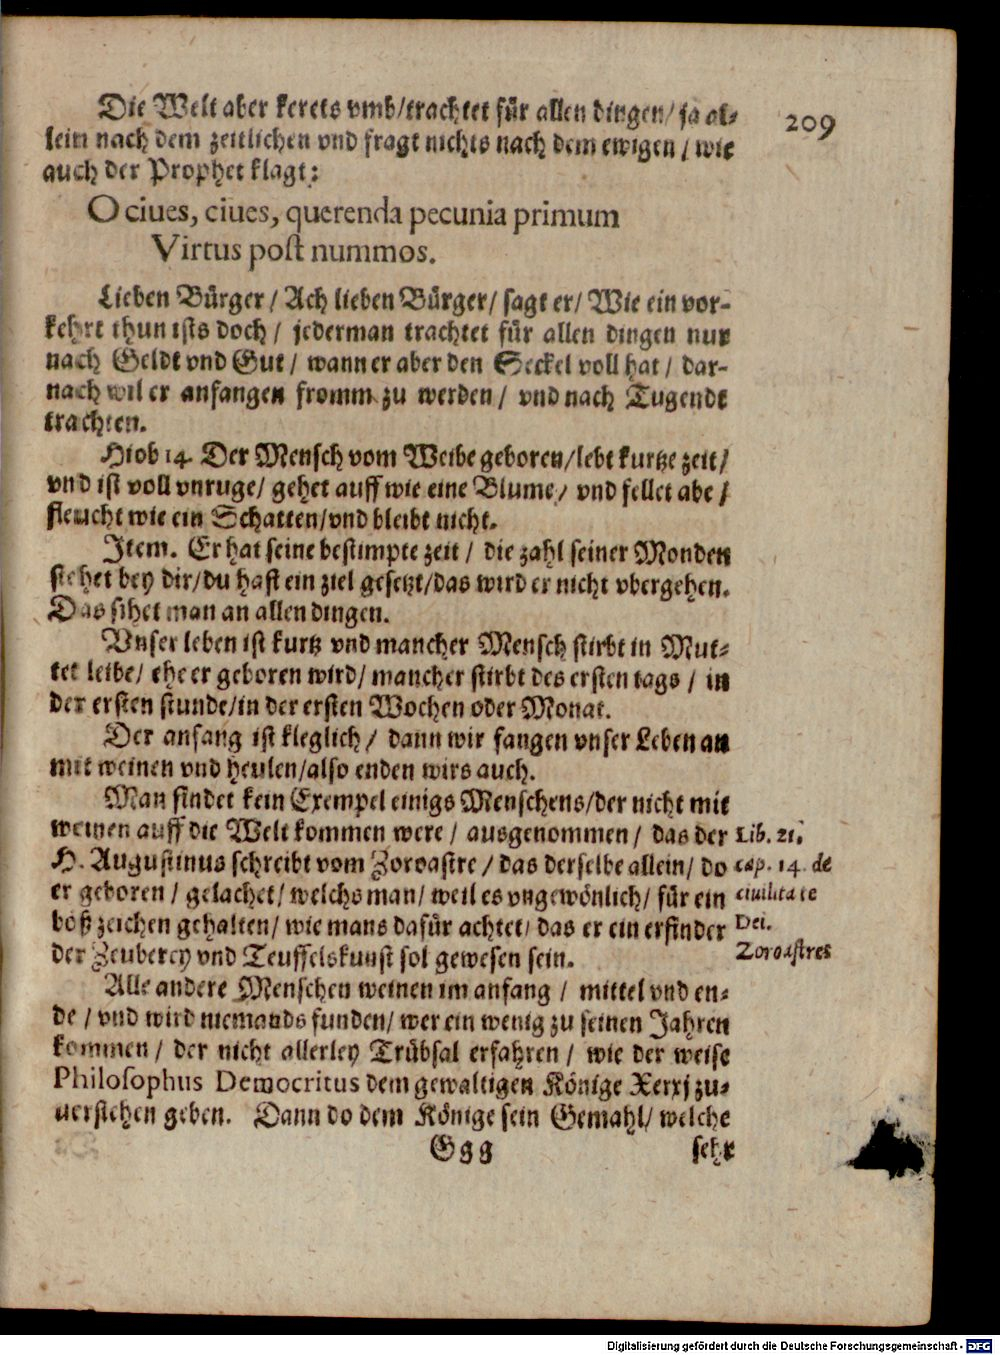 209
Die Welt aber kerets vmb/trachtet für allen dingen/ ja al-
lein nach dem zeitlichen vnd fragt nichts nach dem ewigen / wie
auch der Prophet klagt:
O ciues, ciues, querenda pecunia primum
Virtus post nummos.
Lieben Bürger / Ach lieben Bürger/ sagt er/ Wie ein vor-
kehrt thun ists doch / jederman trachtet für allen dingen nur
nach Geldt vnd Gut / wann er aber den Seckel voll hat / dar-
nach wil er anfangen fromm zu werden / vnd nach Tugendt
trachten.
Hiob 14. Der Mensch vom Weibe geboren/lebt kurtze zeit/
vnd ist voll vnruge/ gehet auff wie eine Blume / vnd fellet abe /
fleucht wie ein Schatten/vnd bleibt nicht.
Item. Er hat seine bestimpte zeit / die zahl seiner Monden
stehet bey dir/du hast ein ziel gesetzt/das wird er nicht vbergehen.
Das sihet man an allen dingen.
Vnser leben ist kurtz vnd mancher Mensch stirbt in Mut-
ter leibe/ ehe er geboren wird/ mancher stirbt des ersten tags / in
der ersten stunde/in der ersten Wochen oder Monat.
Der anfang ist kleglich / dann wir fangen vnser Leben an
mit weinen vnd heulen/also enden wirs auch.
Man findet kein Exempel einigs Menschens/der nicht mit
weinen auff die Welt kommen were / ausgenommen / das der
H. Augustinus schreibt vom Zoroastre / das derselbe allein/ do
er geboren / gelachet/ welchs man/ weil es vngewönlich/ für ein
böß zeichen gehalten/ wie mans dafür achtet/ das er ein erfinder
der Zeuberey vnd Teuffelskunst sol gewesen sein.
Lib. 21.
cap. 14. de
ciuilitate
Dei.
Zoroastres
Alle andere Menschen weinen im anfang / mittel vnd en-
de / vnd wird niemands funden/ wer ein wenig zu seinen Jahren
kommen / der nicht allerley Trübsal erfahren / wie der weise
Philosophus Democritus dem gewaltigen Könige Xerxj zu-
uerstehen geben. Dann do dem Könige sein Gemahl/ welche
Ggg sehr
Digitalisierung gefördert durch die Deutsche Forschungsgemeinschaft - DFG